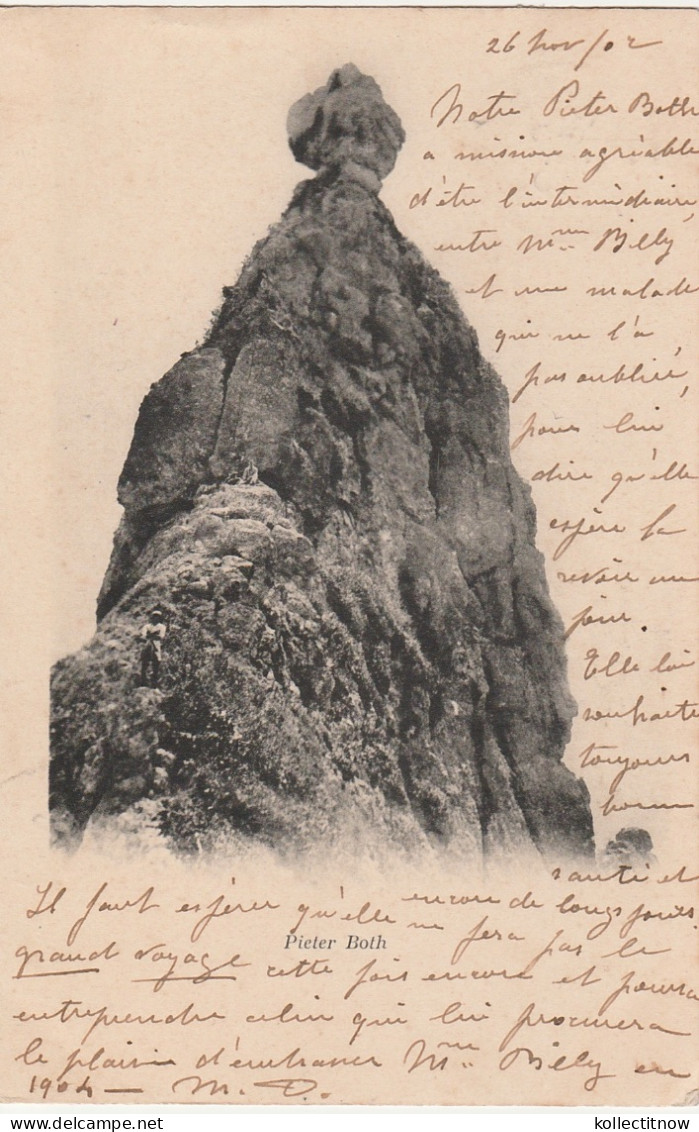 26 Nov/02
Notre Pieter Both
a mission agréable
d'être l'intermédiaire
entre Mme Billy
et une malade
qui ne l'a
pas oubliée
pour lui
dire qu'elle
espère la
revoir un
jour.
Elle lui
souhaite
toujours
bonne
santé et
encore de longs jours
Il faut espérer qu'elle ne fera pas le
Pieter Both
grand voyage cette fois encore et pourra
entreprendre celui qui lui procurera
le plaisir d'embrasser Mme Billy en
1904 — M. D.
kollectitnow